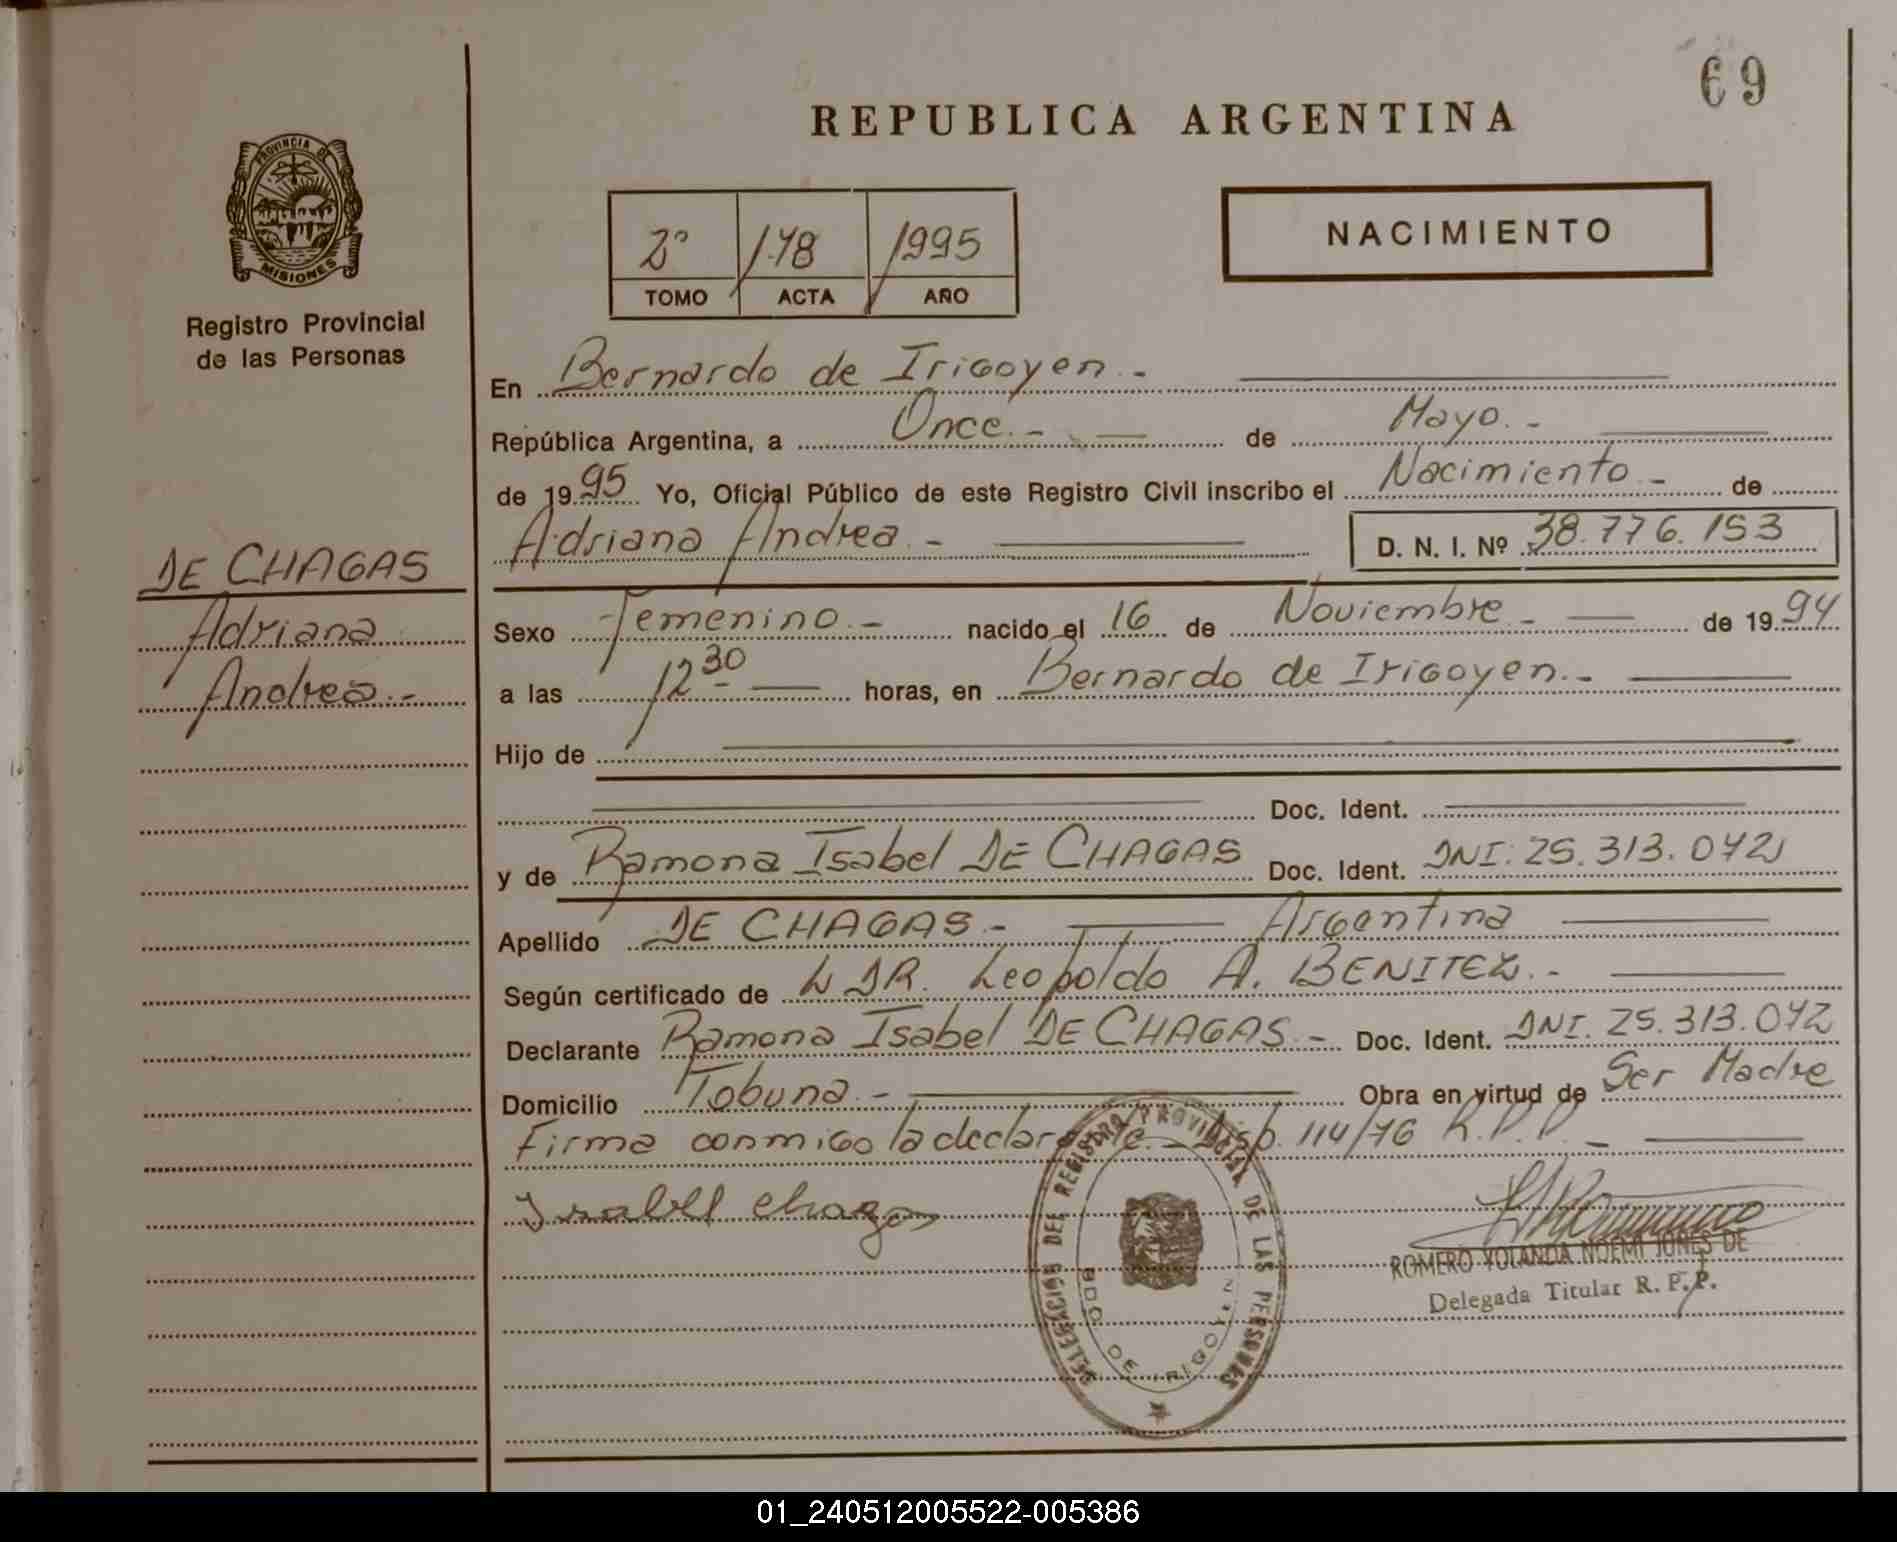 69
REPUBLICA ARGENTINA
PROVINCIA DE
MISIONES
Registro Provincial
de las Personas
2° 178 1995
TOMO ACTA AÑO
NACIMIENTO
En Bernardo de Irigoyen.-
República Argentina, a Once.- de Mayo.-
de 1995 Yo, Oficial Público de este Registro Civil inscribo el Nacimiento - de
Adriana Andrea.- D. N. I. Nº 38.776.153
DE CHAGAS
Adriana
Andrea.-
Sexo Femenino.- nacido el 16 de Noviembre.- de 1994
a las 12 30 horas, en Bernardo de Irigoyen.-
Hijo de
Doc. Ident.
y de Ramona Isabel DE CHAGAS Doc. Ident. DNI. 25.313.042
Apellido DE CHAGAS.- Argentina
Según certificado de DR. Leopoldo A. BENITEZ.-
Declarante Ramona Isabel DE CHAGAS.- Doc. Ident. DNI. 25.313.042
Domicilio Tobuna.- Obra en virtud de Ser Madre
Firma conmigo la declarante.- Disp. 114/76 R.P.P.-
Isabel Chagas
DELEGACION DEL REGISTRO PROVINCIAL DE LAS PERSONAS
BDO. DE IRIGOYEN
ROMERO YOLANDA NOEMI JONES DE
Delegada Titular R. P. P.
01_240512005522-005386